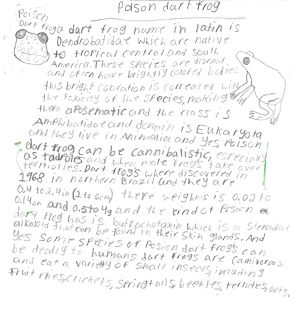 Poison dart frog
Poison
Dart frog
a dart frog name in latin is
Dendrobatidae which are native
to tropical central and south
America. These species are diurnal
and often have brightly colored bodies
this bright coloration is correlated with
the toxicity of the species, making
them aposematic and the class is
Amphibia and domain is Eukaryota
and they live in Animalia and yes Poison
dart frog can be cannibalistic, especially
as tadpoles and when male frogs take over
territories. Dart frogs where discovered in
1968 in northern Brazil and they are
0.4 to 2.4in (2 to 6cm) there weighns is 0.02 to
0.14on and 0.5 to 4g and the kind of Posion
dart frog has is which is a Steroidal
alkaloid that can be found in their skin glands. And
yes some species of Posion dart frogs can
be deadly to humans dart frogs are
and eat a variety of small insects, including
fruit flies, crickets, springtails, beetles, termites, ants.